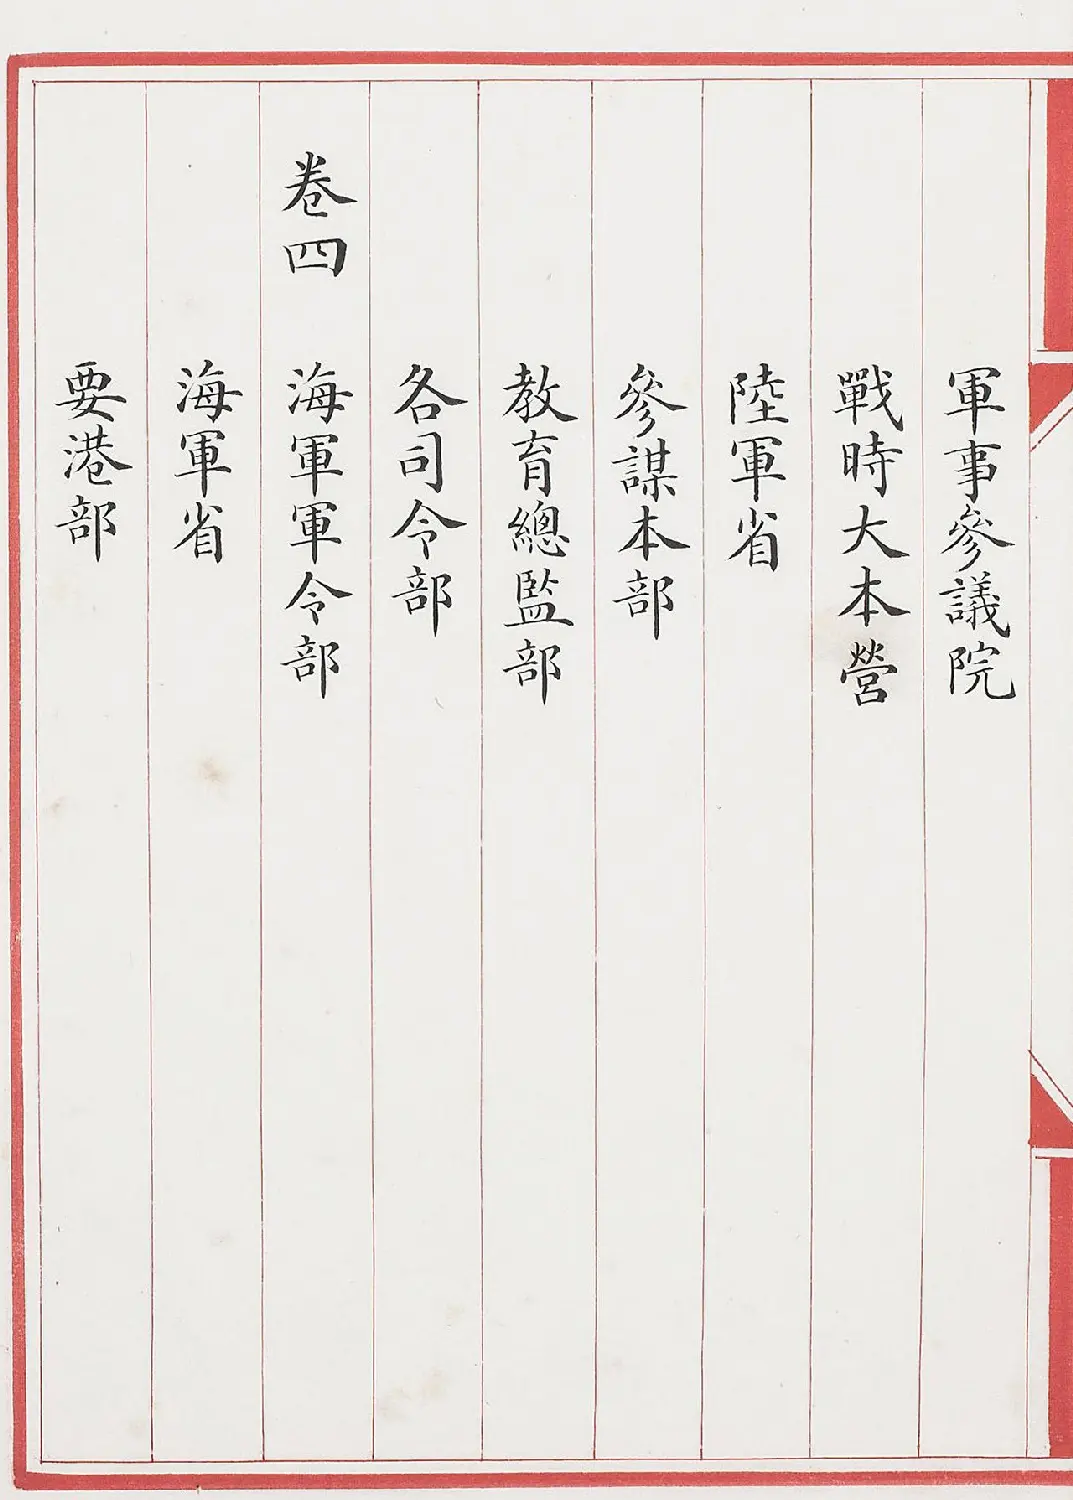 軍事參議院
戰時大本營
陸軍省
參謀本部
教育總監部
各司令部
卷四 海軍軍令部
海軍省
要港部